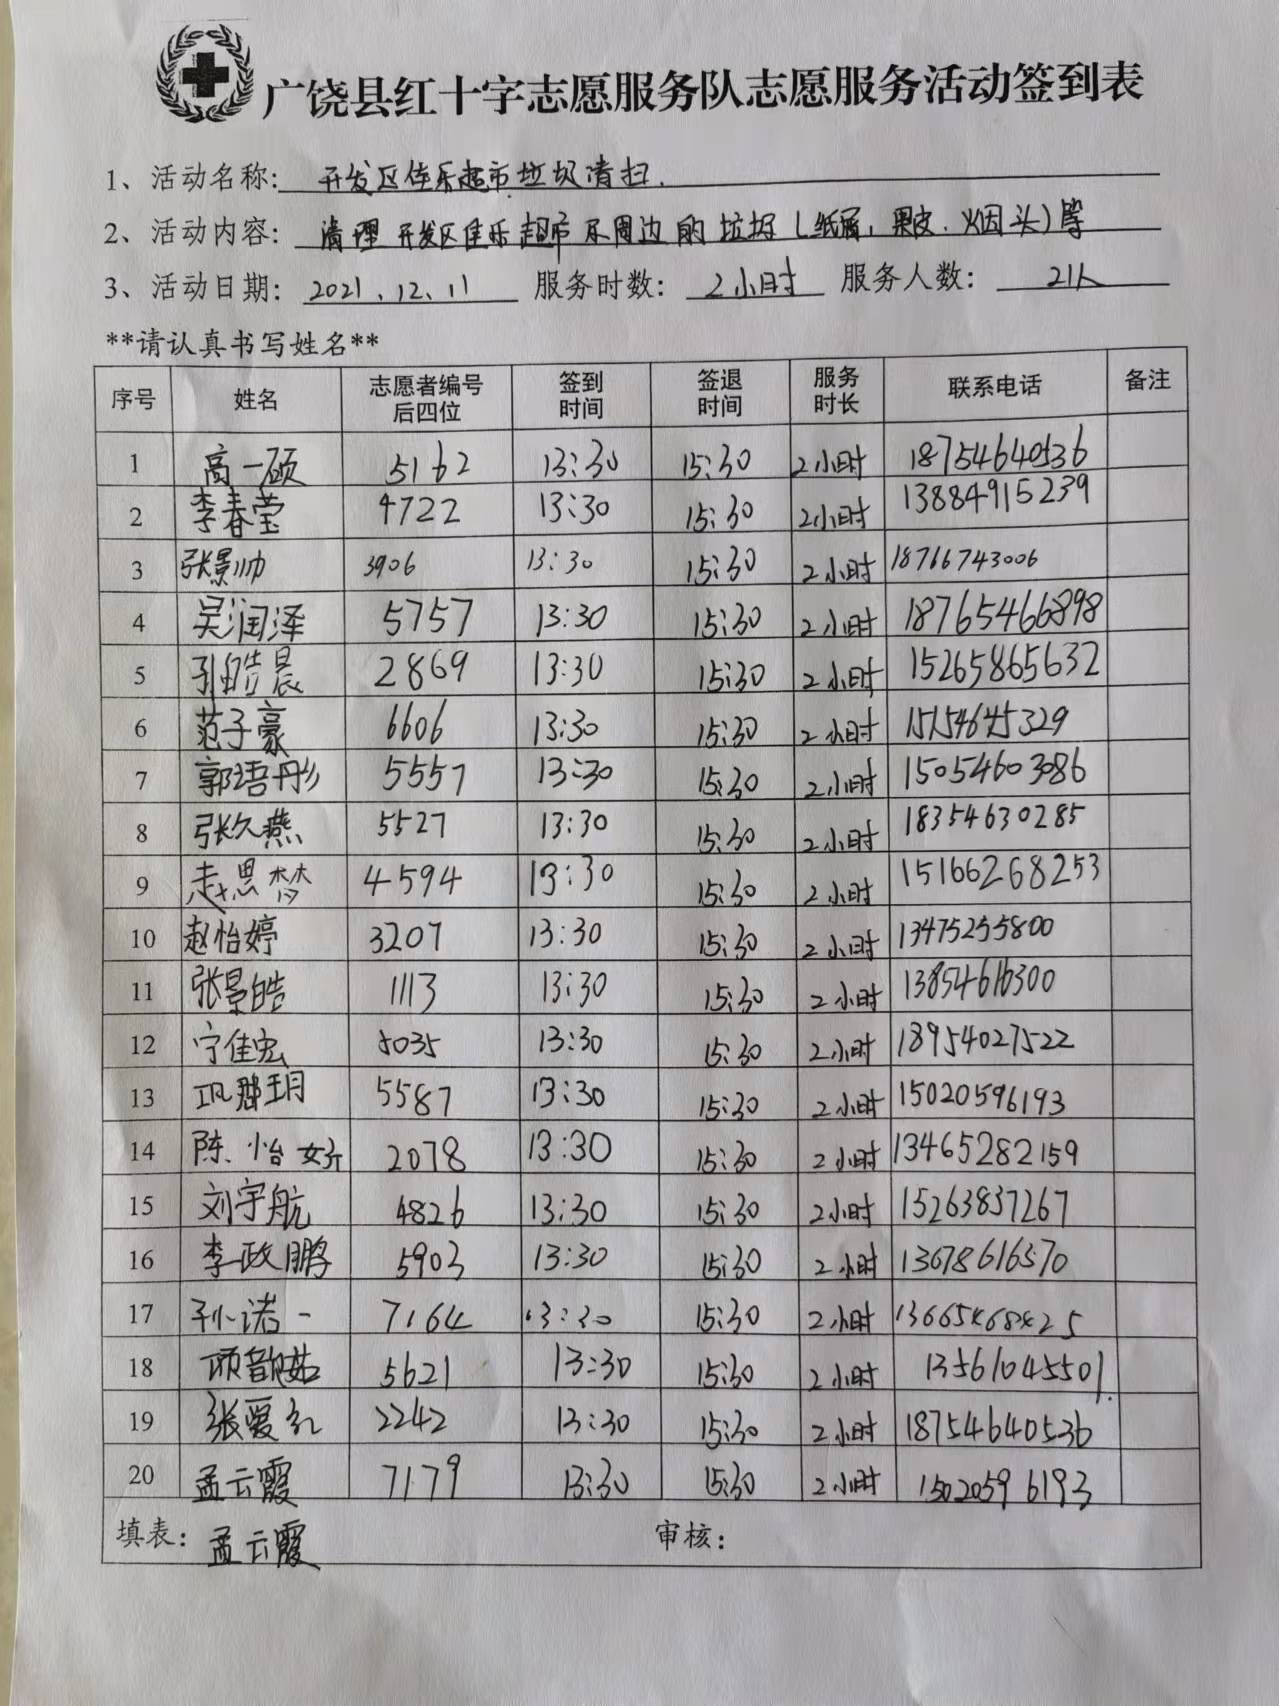 广饶县红十字志愿服务队志愿服务活动签到表
1、活动名称: 开发区佳乐超市垃圾清扫.
2、活动内容: 清理开发区佳乐超市及周边的垃圾(纸屑,果皮.烟头)等
3、活动日期: 2021.12.11 服务时数: 2小时 服务人数: 21人
**请认真书写姓名**
序号 姓名 志愿者编号后四位 签到时间 签退时间 服务时长 联系电话 备注
1 高一硕 5162 13:30 15:30 2小时 18754640536
2 李春莹 4722 13:30 15:30 2小时 13884915239
3 张景帅 3906 13:30 15:30 2小时 18766743006
4 吴润泽 5757 13:30 15:30 2小时 18765466898
5 孙皓晨 2869 13:30 15:30 2小时 15265865632
6 范子豪 6606 13:30 15:30 2小时 15154645329
7 郭语彤 5557 13:30 15:30 2小时 15054603086
8 张久燕 5527 13:30 15:30 2小时 18354630285
9 赵思梦 4594 13:30 15:30 2小时 15166268253
10 赵怡婷 3207 13:30 15:30 2小时 13475255800
11 张景皓 1113 13:30 15:30 2小时 13854616300
12 宁佳宏 5035 13:30 15:30 2小时 18954027522
13 5587 13:30 15:30 2小时 15020596193
14 陈怡妤 2078 13:30 15:30 2小时 13465282159
15 刘宇航 4826 13:30 15:30 2小时 15263837267
16 李政鹏 5903 13:30 15:30 2小时 13678616570
17 孙诺一 7164 13:30 15:30 2小时
18 5621 13:30 15:30 2小时 13561045501.
19 张爱红 2242 13:30 15:30 2小时 18754640536
20 孟云霞 7179 13:30 15:30 2小时 15020596193
填表: 孟云霞 审核: